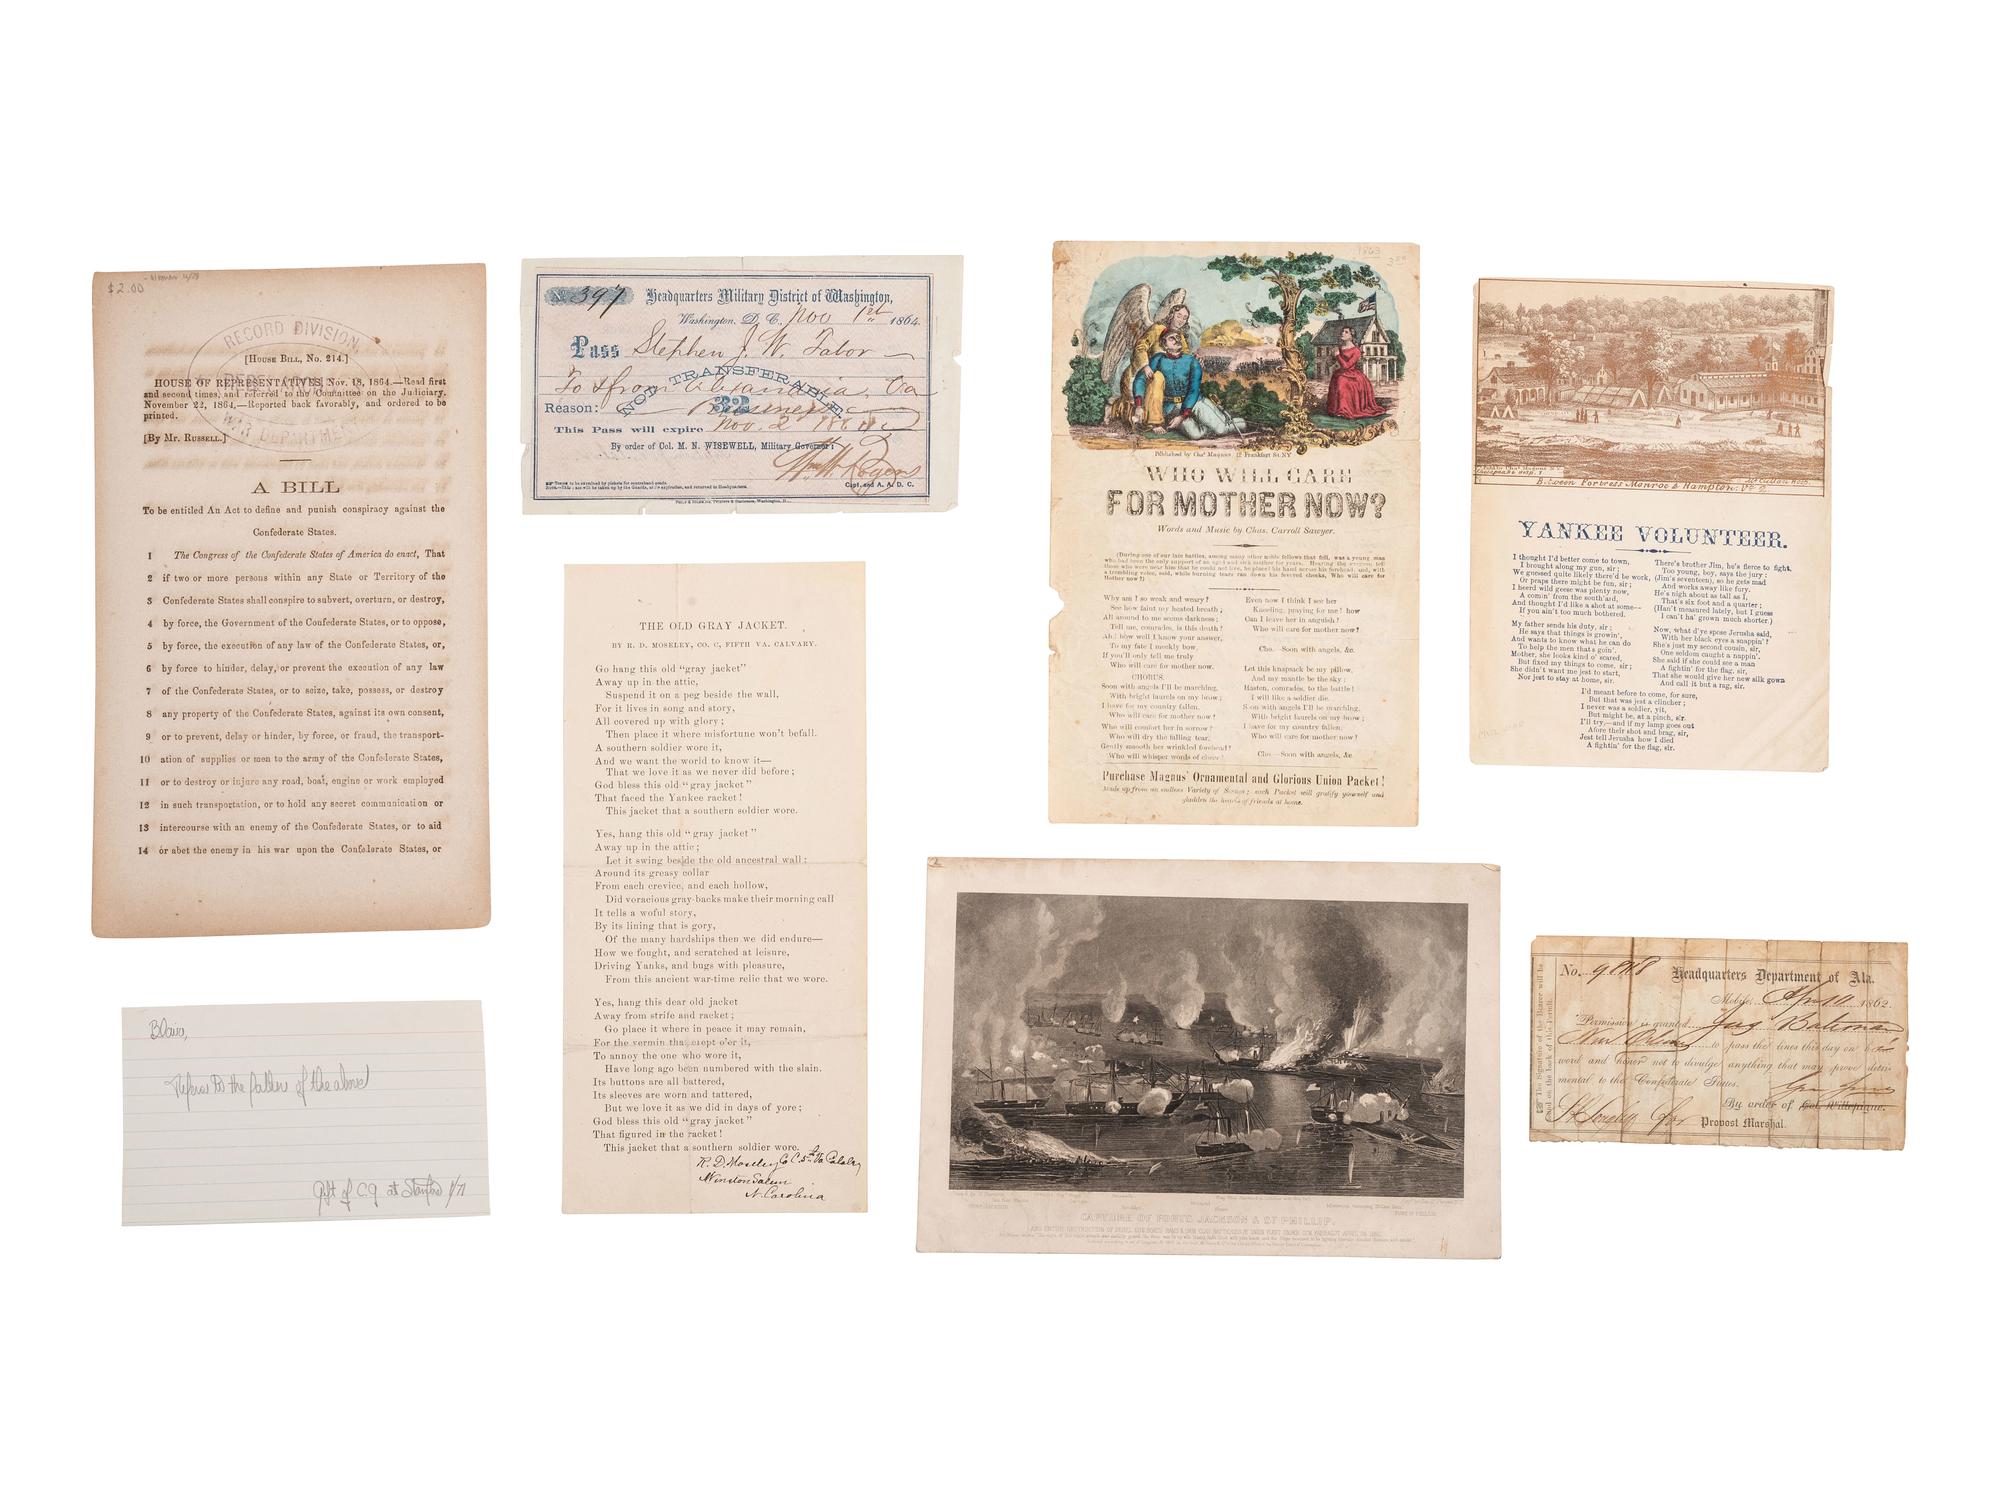 $2.00
RECORD DIVISION
REBEL ARCHIVES
WAR DEPARTMENT
[House Bill, No. 214.]
HOUSE OF REPRESENTATIVES, Nov. 18, 1864.—Read first
and second times, and referred to the Committee on the Judiciary.
November 22, 1864.—Reported back favorably, and ordered to be
printed.
[By Mr. Russell.]
A BILL
To be entitled An Act to define and punish conspiracy against the
Confederate States.
1 The Congress of the Confederate States of America do enact, That
2 if two or more persons within any State or Territory of the
3 Confederate States shall conspire to subvert, overturn, or destroy,
4 by force, the Government of the Confederate States, or to oppose,
5 by force, the execution of any law of the Confederate States, or,
6 by force to hinder, delay, or prevent the execution of any law
7 of the Confederate States, or to seize, take, possess, or destroy
8 any property of the Confederate States, against its own consent,
9 or to prevent, delay or hinder, by force, or fraud, the transport-
10 ation of supplies or men to the army of the Confederate States,
11 or to destroy or injure any road, boat, engine or work employed
12 in such transportation, or to hold any secret communication or
13 intercourse with an enemy of the Confederate States, or to aid
14 or abet the enemy in his war upon the Confederate States, or
Blair,
Refers to the father of the above
Gift of C.G. at Stanford 1/71
No 397 Headquarters Military District of Washington,
Washington, D. C., Nov 1st 1864.
Pass Stephen J. W. Tabor
To & from Alexandria, Va
NOT TRANSFERABLE.
22
Reason: Business
This Pass will expire Nov. 2 1864
By order of Col. M. N. WISEWELL, Military Governor:
Wm W Rogers
Capt. and A. A. D. C.
THE OLD GRAY JACKET.
BY R. D. MOSELEY, CO. C, FIFTH VA. CALVARY.
Go hang this old "gray jacket"
Away up in the attic,
Suspend it on a peg beside the wall,
For it lives in song and story,
All covered up with glory;
Then place it where misfortune won't befall.
A southern soldier wore it,
And we want the world to know it—
That we love it as we never did before;
God bless this old "gray jacket"
That faced the Yankee racket!
This jacket that a southern soldier wore.
Yes, hang this old "gray jacket"
Away up in the attic;
Let it swing beside the old ancestral wall;
Around its greasy collar
From each crevice, and each hollow,
Did voracious gray-backs make their morning call
It tells a woful story,
By its lining that is gory,
Of the many hardships then we did endure—
How we fought, and scratched at leisure,
Driving Yanks, and bugs with pleasure,
From this ancient war-time relic that we wore.
Yes, hang this dear old jacket
Away from strife and racket;
Go place it where in peace it may remain,
For the vermin that crept o'er it,
To annoy the one who wore it,
Have long ago been numbered with the slain.
Its buttons are all battered,
Its sleeves are worn and tattered,
But we love it as we did in days of yore;
God bless this old "gray jacket"
That figured in the racket!
This jacket that a southern soldier wore.
R. D. Moseley Co C. 5th Va Calalry
Winston Salem
N. Carolina
1863
3.50
Published by Chas Magnus 12 Frankfort St. NY
WHO WILL CARE
FOR MOTHER NOW?
Words and Music by Chas. Carroll Sawyer.
(During one of our late battles, among many other noble fellows that fell, was a young man
who had been the only support of an aged and sick mother for years. Hearing the surgeon tell
those who were near him that he could not live, he placed his hand across his forehead, and, with
a trembling voice, said, while burning tears ran down his fevered cheeks, Who will care for
Mother now?)
Why am I so weak and weary?
See how faint my heated breath;
All around to me seems darkness;
Tell me, comrades, is this death?
Ah! how well I know your answer,
To my fate I meekly bow,
If you'll only tell me truly
Who will care for mother now.
CHORUS.
Soon with angels I'll be marching,
With bright laurels on my brow;
I have for my country fallen,
Who will care for mother now?
Who will comfort her in sorrow?
Who will dry the falling tear,
Gently smooth her wrinkled forehead?
Who will whisper words of cheer?
Even now I think I see her
Kneeling, praying for me! how
Can I leave her in anguish?
Who will care for mother now?
Cho.—Soon with angels, &c.
Let this knapsack be my pillow,
And my mantle be the sky;
Hasten, comrades, to the battle!
I will like a soldier die.
Soon with angels I'll be marching,
With bright laurels on my brow;
I have for my country fallen,
Who will care for mother now?
Cho.—Soon with angels, &c.
Purchase Magnus' Ornamental and Glorious Union Packet!
Made up from an endless Variety of Scenes; each Packet will gratify yourself and
gladden the hearts of friends at home.
Chesapeake Hosp. 1
Mc Cullen Hosp.
Between Fortress Monroe & Hampton. Va. 2
YANKEE VOLUNTEER.
I thought I'd better come to town,
I brought along my gun, sir;
We guessed quite likely there'd be work,
Or praps there might be fun, sir;
I heerd wild geese was plenty now,
A comin' from the south'ard,
And thought I'd like a shot at some—
If you ain't too much bothered.
My father sends his duty, sir;
He says that things is growin',
And wants to know what he can do
To help the men that's goin'.
Mother, she looks kind o' scared,
But fixed my things to come, sir;
She didn't want me jest to start,
Nor jest to stay at home, sir.
There's brother Jim, he's fierce to fight,
Too young, boy, says the jury;
(Jim's seventeen), so he gets mad
And works away like fury.
He's nigh about as tall as I,
That's six foot and a quarter;
(Han't measured lately, but I guess
I can't ha' grown much shorter.)
Now, what d'ye spose Jerusha said,
With her black eyes a snappin'?
She's just my second cousin, sir,
One seldom caught a nappin'.
She said if she could see a man
A fightin' for the flag, sir,
That she would give her new silk gown
And call it but a rag, sir.
I'd meant before to come, for sure,
But that was jest a clincher;
I never was a soldier, yit,
But might be, at a pinch, sir.
I'll try,—and if my lamp goes out
Afore their shot and brag, sir,
Jest tell Jerusha how I died
A fightin' for the flag, sir.
CAPTURE OF FORTS JACKSON & ST PHILLIP.
No. 9878 Headquarters Department of Ala.
Mobile, Apr 11 1862.
Permission is granted Jas Bateman
New Orleans to pass the lines this day on his
word and honor not to divulge anything that may prove detri-
mental to the Confederate States.
By order of Col. Villepigue.
Provost Marshal.
The Signature of the Bearer will be
found on the back of this Permit.